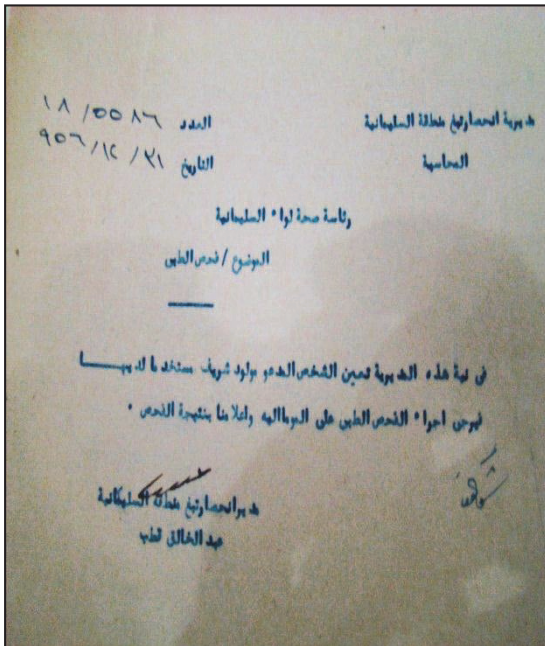 مديرية انحصار تبغ منطقة السليمانية
المحاسبة
العدد ١٨/٥٥٨٦
التاريخ ٣١/١٢/٩٥٦
رئاسة صحة لواء السليمانية
الموضوع / فحص الطبي
في نية هذه المديرية تعين الشخص المدعو مولود شريف مستخدما لديها
فيرجى اجراء الفحص الطبي على المومااليه واعلامنا بنتيجة الفحص .
مدير انحصار تبغ منطقة السليمانية
عبد الخالق قطب